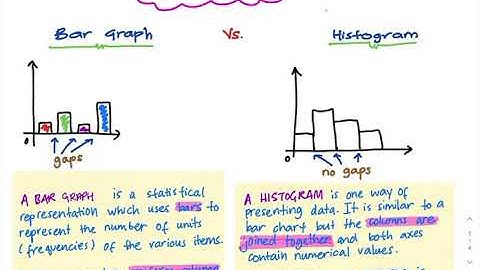 Bar Graph
Vs.
Histogram
0
gaps
0
no gaps
A BAR GRAPH is a statistical
representation which uses bars to
represent the number of units
(frequencies) of the various items.
A HISTOGRAM is one way of
presenting data. It is similar to a
bar chart but the columns are
joined together and both axes
contain numerical values.